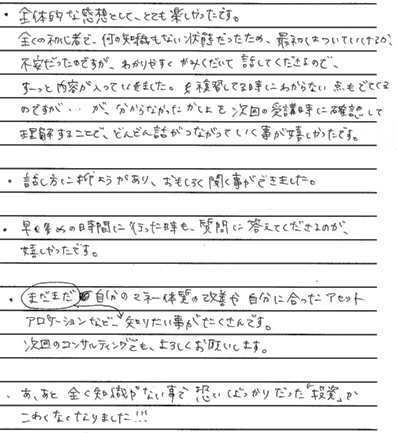 ・全体的な感想として、とても楽しかったです。
全くの初心者で、何の知識もない状態だったため、最初はついていけるか
不安だったのですが、わかりやすくかみくだいて話してくださるので、
すーっと内容が入っていきました。復習してる時にわからない点もでてくる
のですが・・が、分からなかったかしょを次回の受講時に確認して
理解することで、どんどん話がつながっていく事が嬉しかったです。
・話し方に抑ようがあり、おもしろく聞く事ができました。
・早めの時間に行った時も、質問に答えてくださるのが、
嬉しかったです。
・まだまだ自分のマネー体質の改善や自分に合ったアセット
アロケーションなど、知りたい事がたくさんです。
次回のコンサルティングでも、よろしくお願いします。
・あ、あと全く知識がない事で恐いばっかりだった「投資」が
こわくなくなりました!!!